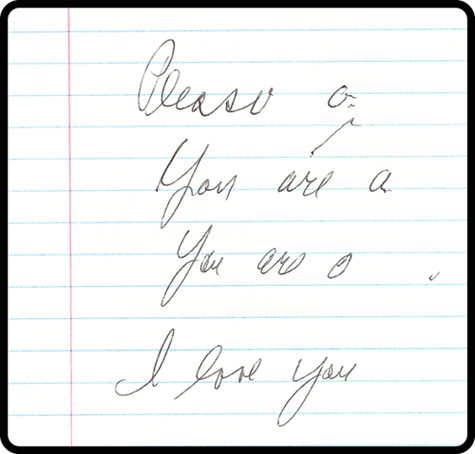 Please a
You are a
You are a
I love you